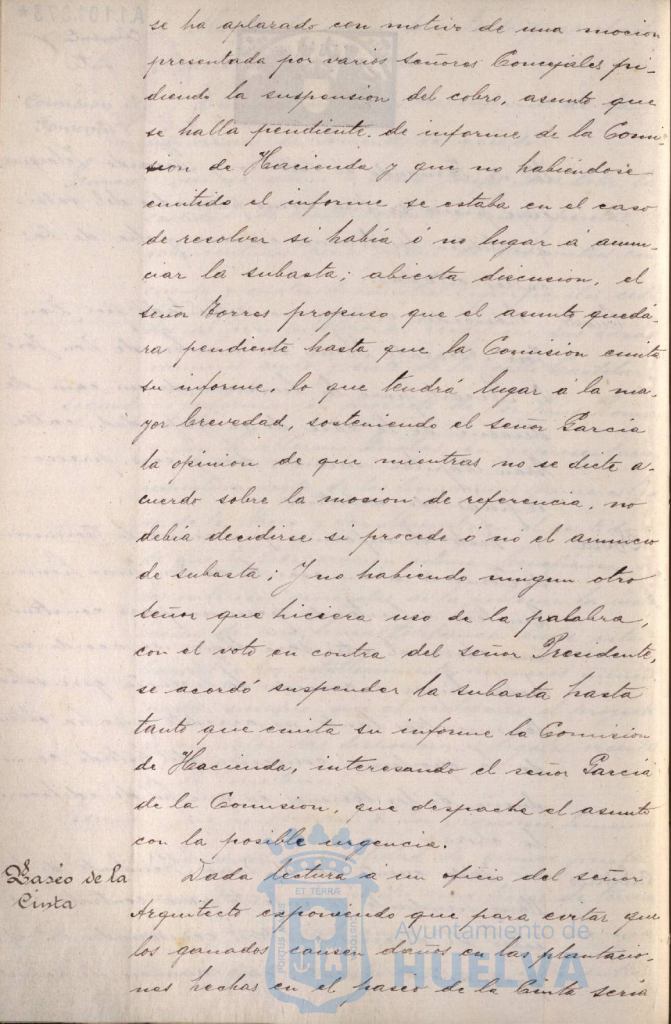 se ha aplazado con motivo de una mocion
presentada por varios señores Concejales pi-
diendo la suspension del cobro, asunto que
se halla pendiente de informe de la Comi-
sion de Hacienda y que no habiéndose
emitido el informe se estaba en el caso
de resolver si habia ó no lugar á anun-
ciar la subasta; abierta discusion, el
señor Torres propuso que el asunto quedá-
ra pendiente hasta que la Comision emita
su informe, lo que tendrá lugar á la ma-
yor brevedad, sosteniendo el señor Garcia
la opinion de que mientras no se dicte a-
cuerdo sobre la mocion de referencia, no
debia decidirse si procede ó nó el anuncio
de subasta; Y no habiendo ningun otro
señor que hiciera uso de la palabra,
con el voto en contra del señor Presidente,
se acordó suspender la subasta hasta
tanto que emita su informe la Comision
de Hacienda, interesando el señor Garcia
de la Comision, que despache el asunto
con la posible urgencia.
Paséo de la
Cinta
Dada lectura á un oficio del señor
Arquitecto exponiendo que para evitar que
los ganados causen daños en las plantacio-
nes hechas en el paseo de la Cinta seria
ET TERRÆ
PORTUS MARIS
CUSTODIA
Ayuntamiento de
HUELVA